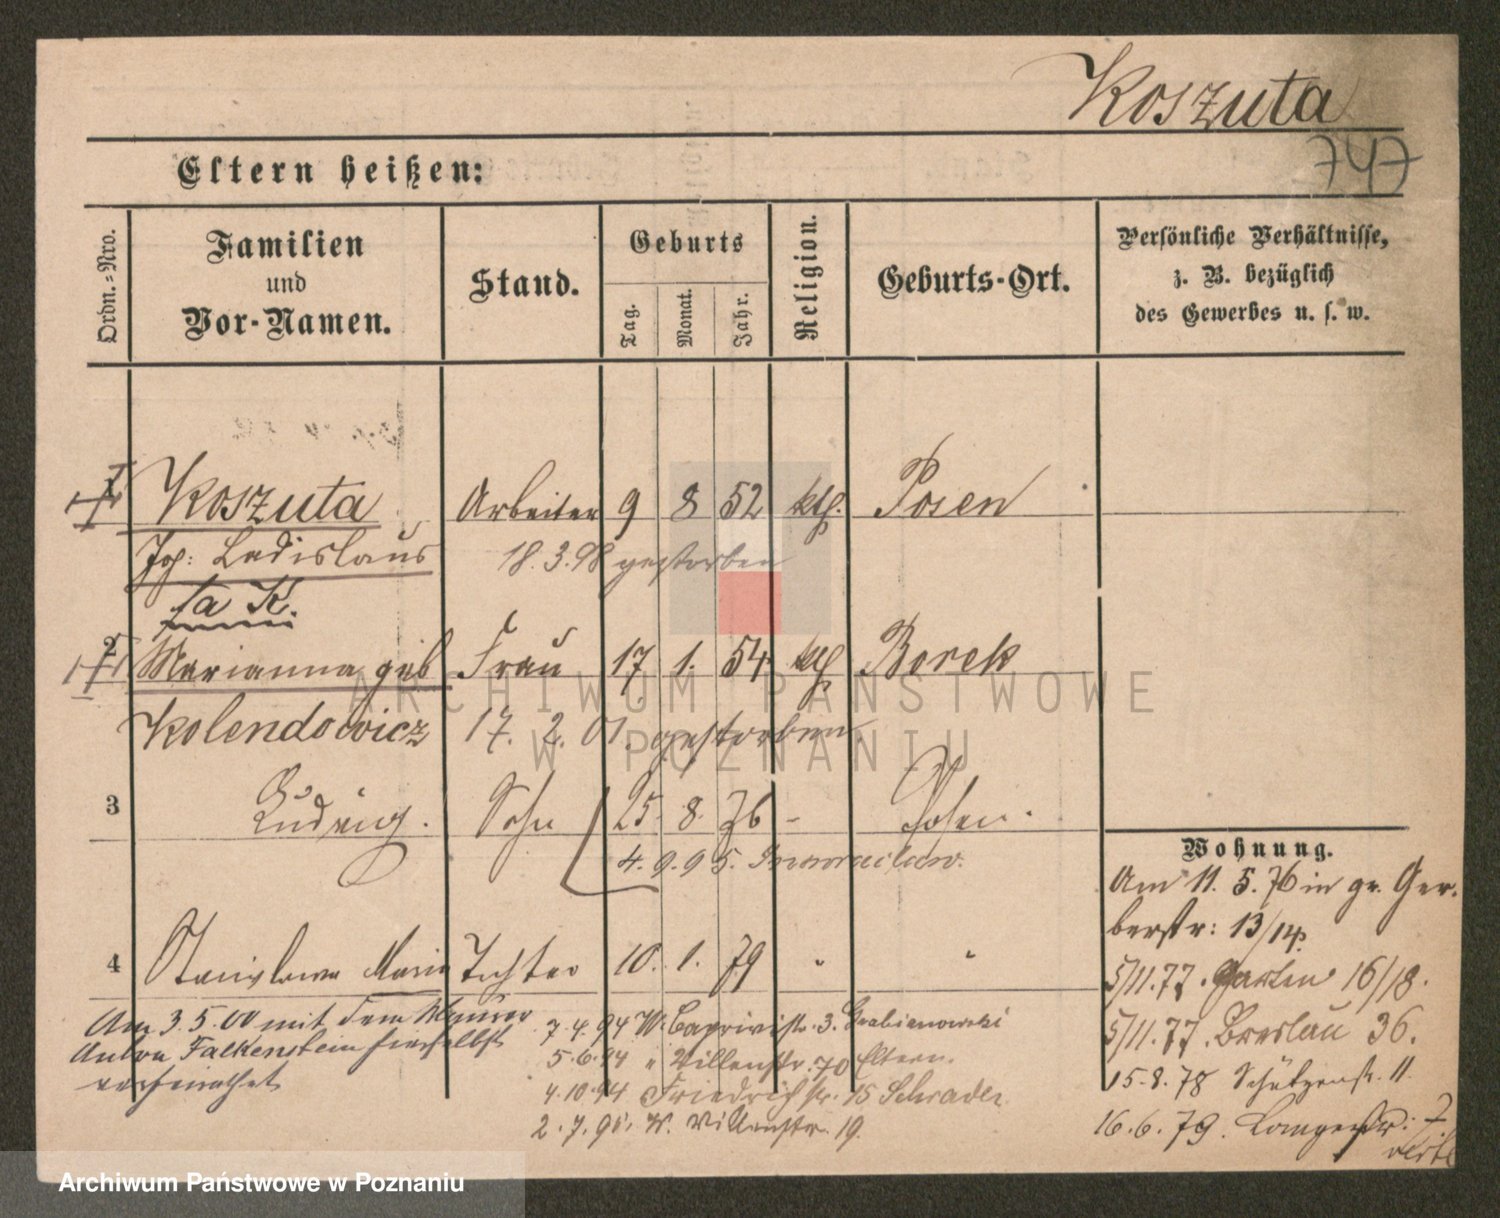 Koszuta
747
Eltern heißen:
Ordn.-Nro.
Familien
und
Vor-Namen.
Stand.
Geburts
Tag.
Monat.
Jahr.
Religion.
Geburts-Ort.
Persönliche Verhältnisse,
z. B. bezüglich
des Gewerbes u. s. w.
1 Koszuta Arbeiter 9 8 52 kth. Posen
Jos: Ladislaus 18.3.98 gestorben
fa K.
2 Marianna geb Frau 17 1. 54 kth Borek
Kolendowicz 17. 2. 01. gestorben.
3 Ludwig. Sohn 25. 8. 76 - Posen.
4. 9. 95. Inowraclaw.
Wohnung.
Am 11. 5. 76 in gr. Ger-
berstr: 13/14.
4 Stanislawa Maria Tochter 10. 1. 79 " "
5/11.77. Garten 16/18.
5/11.77. Breslau 36.
15.8.78 Schützenstr. 11.
16.6.79. Langestr: 7
Am 3.5.00 mit dem Maurer
Anton Falkenstein hierselbst
verheirathet
7.4.94 W. Caprivistr. 3. Grabianowski
5.6.94 " Villenstr. 70 Eltern.
4.10.94 Friedrichstr. 15 Schrader
2.7.95. W. Villenstr. 19.
ARCHIWUM PAŃSTWOWE
W POZNANIU
Archiwum Państwowe w Poznaniu